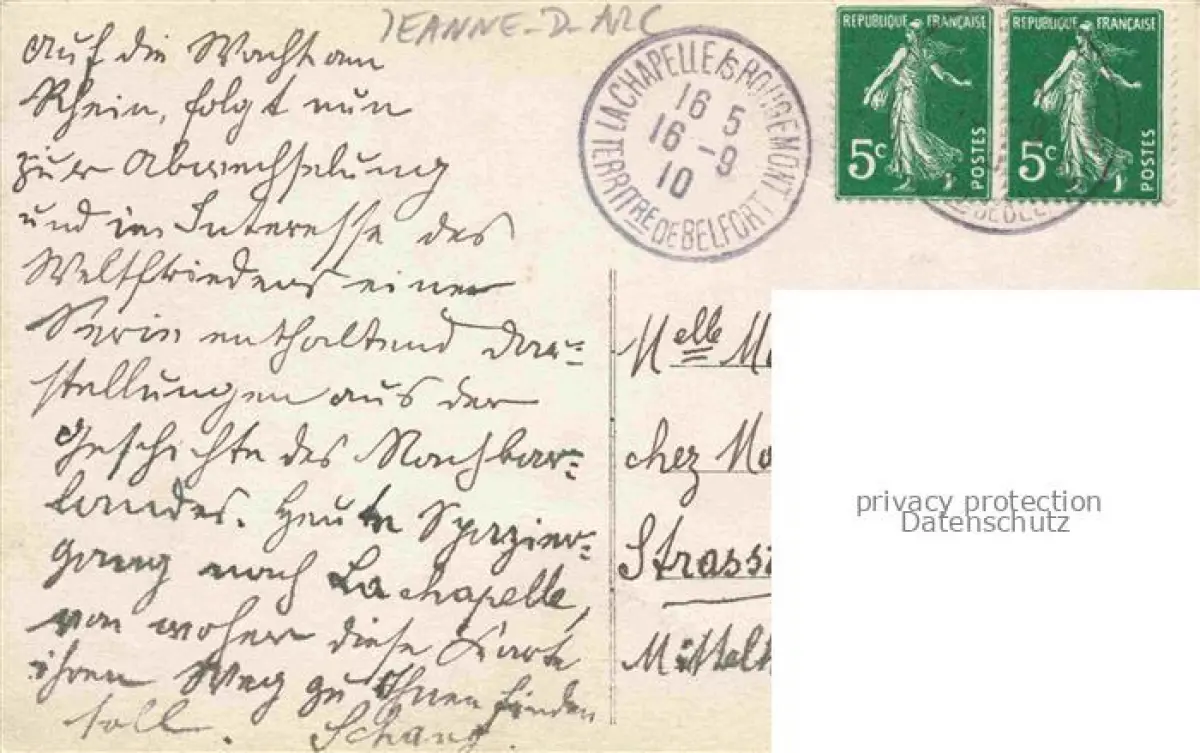 JEANNE-D-ARC
Auf die Wacht am
Rhein, folgt nun
zur Abwechselung
und im Interesse des
Weltfriedens eine
Serie enthaltend Dar=
stellungen aus der
Geschichte des Nachbar=
landes. Heute Spazier=
gang nach Lachapelle,
von woher diese Karte
ihren Weg zu Ihnen finden
soll. Schang.
LACHAPELLE /s ROUGEMONT
16 5
16 - 9
10
TERRITRE DE BELFORT
REPUBLIQUE FRANÇAISE
5c
POSTES
REPUBLIQUE FRANÇAISE
5c
POSTES
DE BEL
Melle
chez
Strass
Mittel
privacy protection
Datenschutz